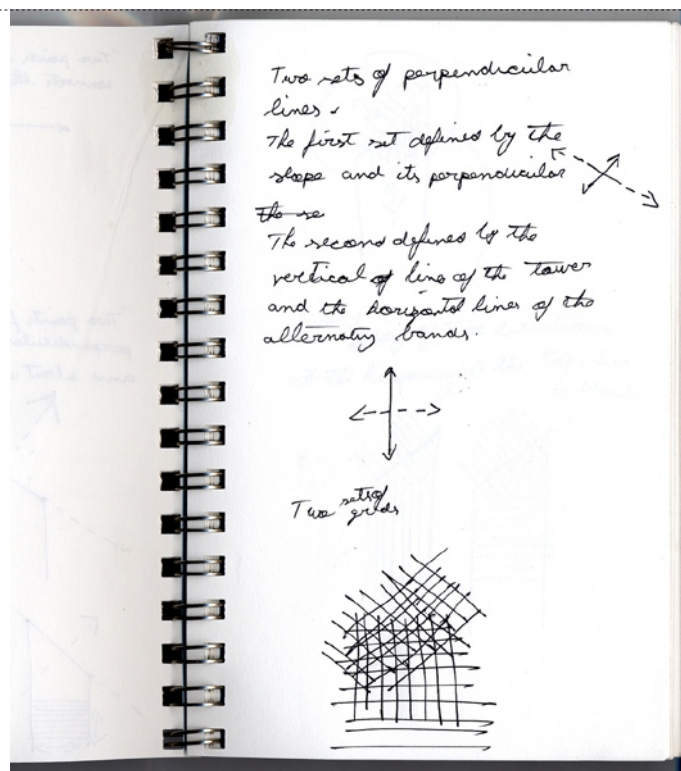 Two sets of perpendicular
lines.
The first set defined by the
slope and its perpendicular
The se
The second defined by the
vertical of line of the tower
and the horizontal lines of the
alternatry bands.
Two sets of
grids